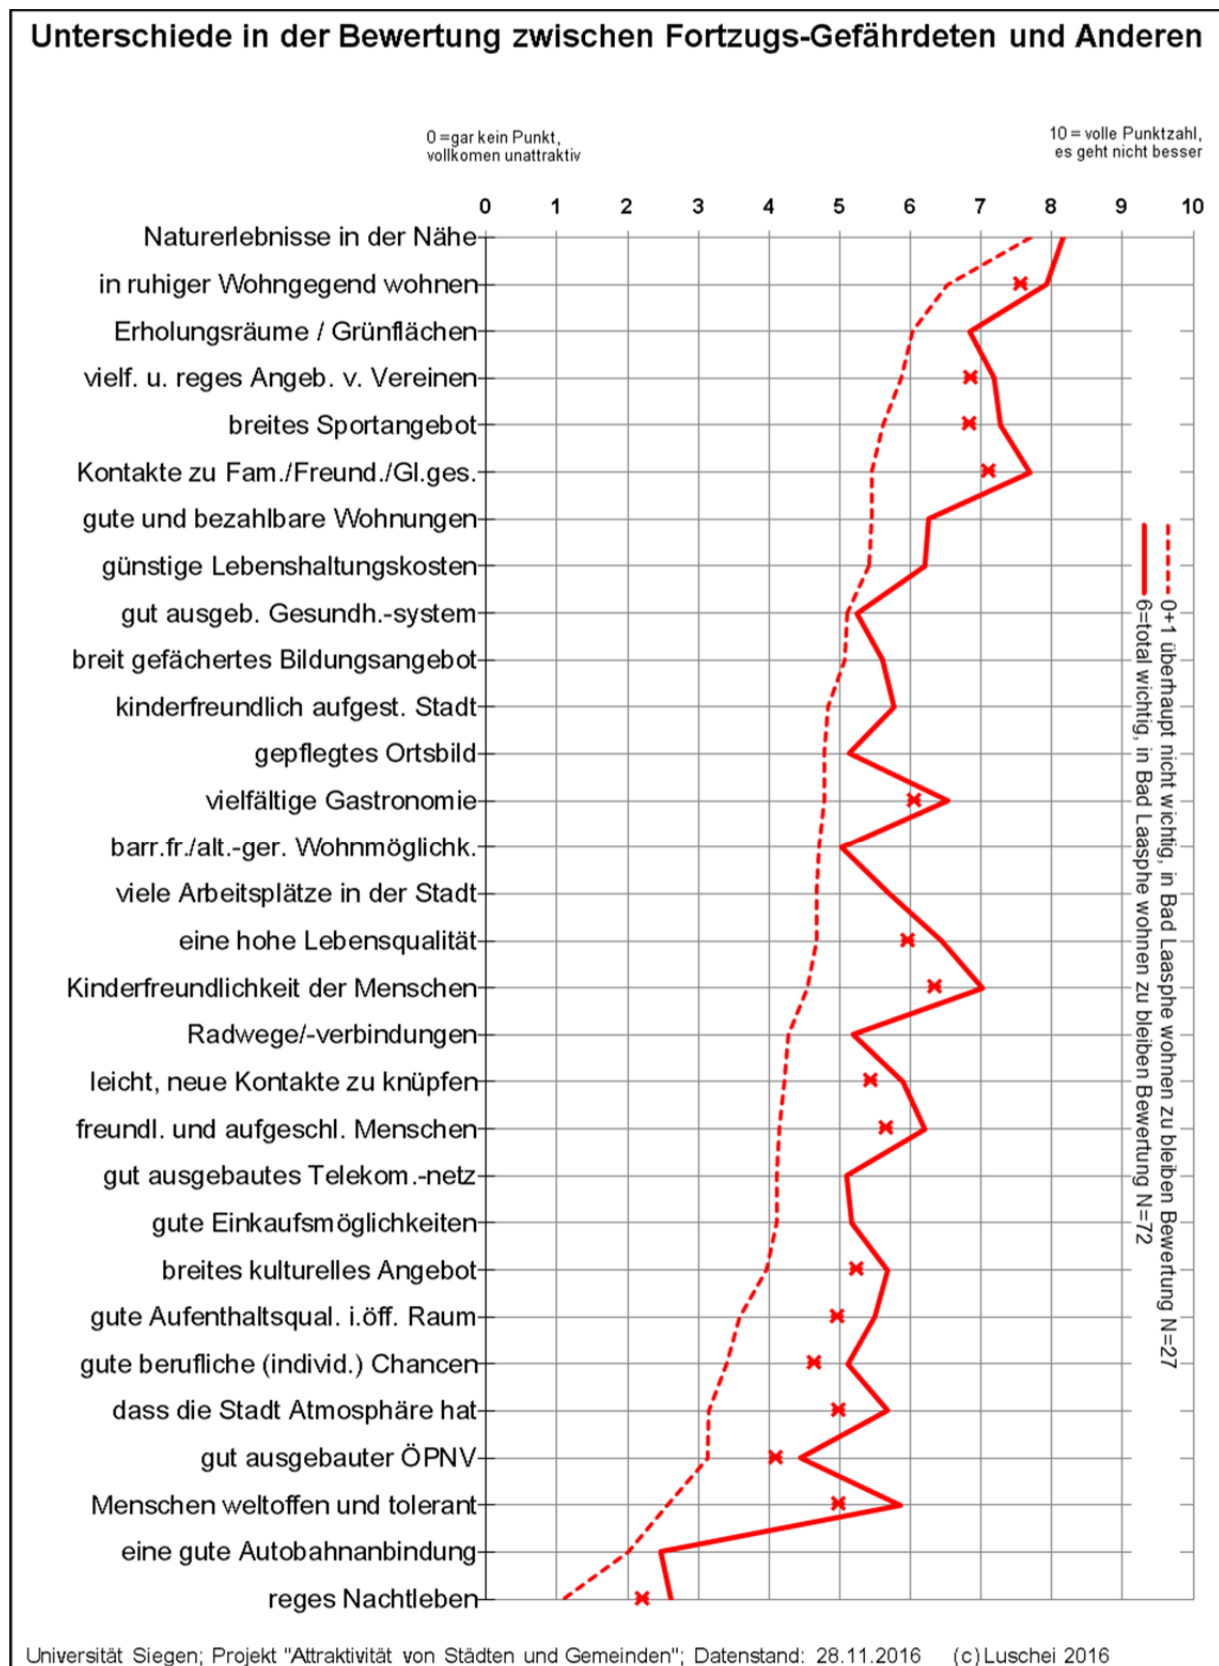 Unterschiede in der Bewertung zwischen Fortzugs-Gefährdeten und Anderen
0 =gar kein Punkt,
vollkomen unattraktiv
10 = volle Punktzahl,
es geht nicht besser
0 1 2 3 4 5 6 7 8 9 10
Naturerlebnisse in der Nähe
in ruhiger Wohngegend wohnen
Erholungsräume / Grünflächen
vielf. u. reges Angeb. v. Vereinen
breites Sportangebot
Kontakte zu Fam./Freund./Gl.ges.
gute und bezahlbare Wohnungen
günstige Lebenshaltungskosten
gut ausgeb. Gesundh.-system
breit gefächertes Bildungsangebot
kinderfreundlich aufgest. Stadt
gepflegtes Ortsbild
vielfältige Gastronomie
barr.fr./alt.-ger. Wohnmöglichk.
viele Arbeitsplätze in der Stadt
eine hohe Lebensqualität
Kinderfreundlichkeit der Menschen
Radwege/-verbindungen
leicht, neue Kontakte zu knüpfen
freundl. und aufgeschl. Menschen
gut ausgebautes Telekom.-netz
gute Einkaufsmöglichkeiten
breites kulturelles Angebot
gute Aufenthaltsqual. i.öff. Raum
gute berufliche (individ.) Chancen
dass die Stadt Atmosphäre hat
gut ausgebauter ÖPNV
Menschen weltoffen und tolerant
eine gute Autobahnanbindung
reges Nachtleben
0+1 überhaupt nicht wichtig, in Bad Laasphe wohnen zu bleiben Bewertung N=27
6=total wichtig, in Bad Laasphe wohnen zu bleiben Bewertung N=72
Universität Siegen; Projekt "Attraktivität von Städten und Gemeinden"; Datenstand: 28.11.2016 (c) Luschei 2016